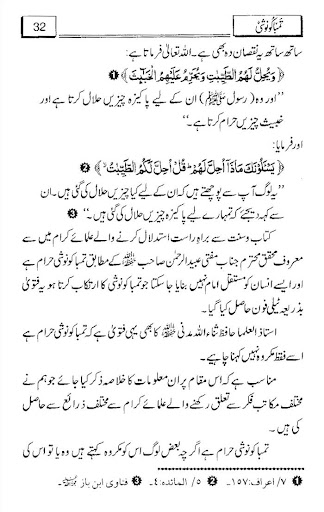 تمباکو نوشی 32
ساتھ ساتھ یہ نقصان دہ بھی ہے۔ اللہ تعالیٰ فرماتا ہے:
﴿ وَيُحِلُّ لَهُمُ الطَّيِّبٰتِ وَيُحَرِّمُ عَلَيْهِمُ الْخَبٰٓئِثَ ﴾ ❶
’’اور وہ (رسول ﷺ) ان کے لیے پاکیزہ چیزیں حلال کرتا ہے اور
خبیث چیزیں حرام کرتا ہے۔‘‘
اور فرمایا:
﴿ يَسْـَٔلُوْنَكَ مَاذَآ اُحِلَّ لَهُمْ ۭ قُلْ اُحِلَّ لَكُمُ الطَّيِّبٰتُ ﴾ ❷
’’یہ لوگ آپ سے پوچھتے ہیں کہ ان کے لیے کیا چیزیں حلال کی گئی ہیں۔ ان
سے کہہ دیجئے کہ تمہارے لیے پاکیزہ چیزیں حلال کی گئی ہیں۔‘‘ ❸
کتاب وسنت سے براہِ راست استدلال کرنے والے علمائے کرام میں سے
معروف محقق محترم جناب مفتی عبیدالرحمٰن صاحب ﷾ کے مطابق تمباکو نوشی حرام ہے
اور ایسے انسان کو مستقل امام نہیں بنایا جا سکتا جو تمباکو نوشی کا ارتکاب کرتا ہو یہ فتویٰ
بذریعہ ٹیلی فون حاصل کیا گیا۔
استاذ العلما حافظ ثناء اللہ مدنی ﷾ کا بھی یہی فتویٰ ہے کہ تمباکو نوشی حرام ہے
اسے فقط مکروہ نہیں کہنا چاہیے۔
مناسب ہے کہ اس مقام پر ان معلومات کا خلاصہ ذکر کیا جائے جو ہم نے
مختلف مکاتب فکر سے تعلق رکھنے والے علمائے کرام سے مختلف ذرائع سے حاصل
کی ہیں۔
تمباکو نوشی حرام ہے اگرچہ بعض لوگ اس کو مکروہ کہتے ہیں وہ یا تو اس کی
❶ ۷/ اعراف:۱۵۷۔ ❷ ۵/ المائدہ:۴۔ ❸ فتاوی ابن باز